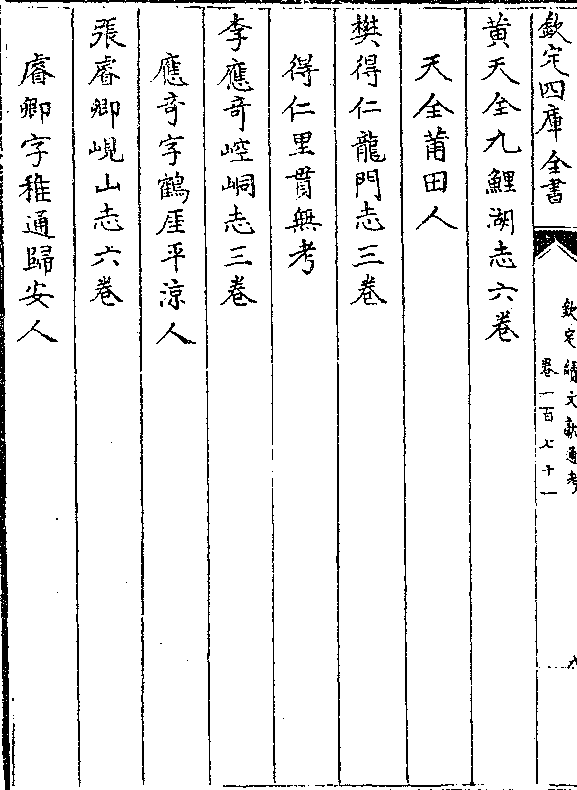 欽定四庫全書
欽定續文獻通考
卷一百七十一
黄天全九鯉湖志六卷
天全莆田人
樊得仁龍門志三卷
得仁里貫無考
李應奇崆峒志三卷
應奇字鶴厓平涼人
張睿卿峴山志六卷
睿卿字稚通歸安人